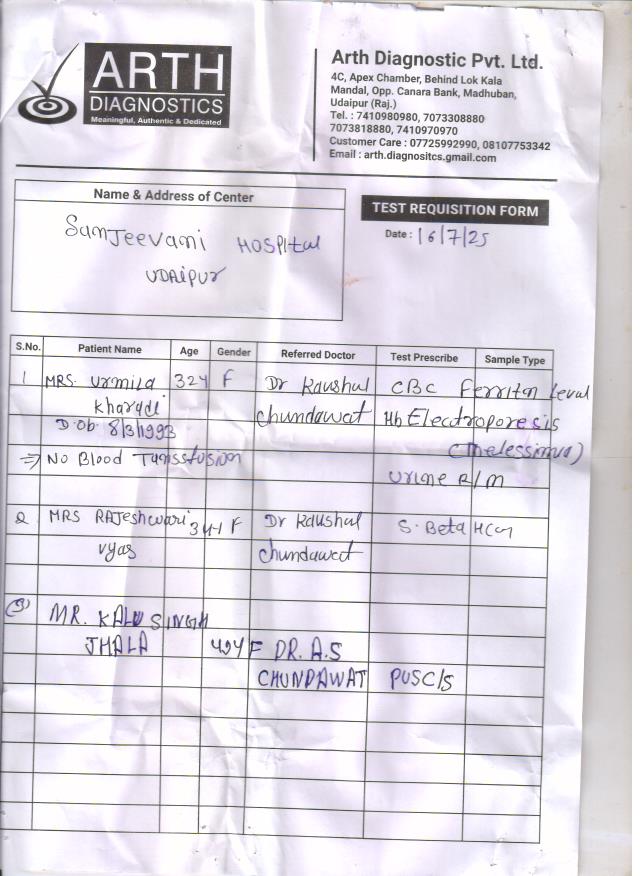 ARTH
DIAGNOSTICS
Meaningful, Authentic & Dedicated
Arth Diagnostic Pvt. Ltd.
4C, Apex Chamber, Behind Lok Kala
Mandal, Opp. Canara Bank, Madhuban,
Udaipur (Raj.)
Tel. : 7410980980, 7073308880
7073818880, 7410970970
Customer Care : 07725992990, 08107753342
Email : arth.diagnositcs.gmail.com
Name & Address of Center
TEST REQUISITION FORM
SanJeevani HOSPItal
UDAIPUR
Date : 16/7/25
S.No. Patient Name Age Gender Referred Doctor Test Prescribe Sample Type
1 MRS. Urmila 32Y F Dr Kaushal CBC Ferritin Leval
Kharadi Chundawat Hb Electroporesis
D.Ob. 8/3/1993
⇒ No Blood
Urine R/M
2 MRS RAJeshwari 34Y F Dr Kaushal S. Beta HCG
Vyas Chundawat
(3) MR. KALU SINGH
JHALA 49Y F DR. A.S
CHUNDAWAT PUSC/S